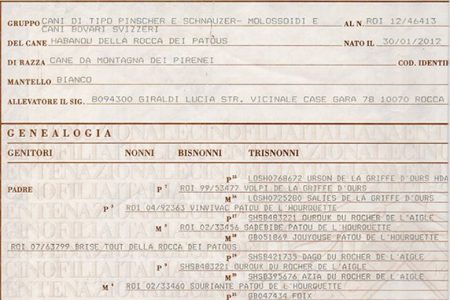 GRUPPO CANI DI TIPO PINSCHER E SCHNAUZER- MOLOSSOIDI E
CANI BOVARI SVIZZERI
AL N. ROI 12/46413
DEL CANE HABANOU DELLA ROCCA DEI PATOUS
NATO IL 30/01/2012
DI RAZZA CANE DA MONTAGNA DEI PIRENEI
COD. IDENTI
MANTELLO BIANCO
ALLEVATORE IL SIG. B094300 GIRALDI LUCIA STR. VICINALE CASE GARA 7B 10070 ROCCA
GENEALOGIA
GENITORI NONNI BISNONNI TRISNONNI
P LOSH0768672 URSON DE LA GRIFFE D'OURS HDA
PADRE P ROI 99/53477 VOLPI DE LA GRIFFE D'OURS
M LOSH0725280 SALIES DE LA GRIFFE D'OURS
P ROI 04/92363 VINVIVAC PATOU DE L'HOURQUETTE
P SHSB483221 OUROUK DU ROCHER DE L'AIGLE
M ROI 02/33456 SADEBIBE PATOU DE L'HOURQUETTE
M GB051869 JOUYOUSE PATOU DE L'HOURQUETTE
ROI 07/63299 BRISE TOUT DELLA ROCCA DEI PATOUS
P SHSB421735 DAGO DU ROCHER DE L'AIGLE
P SHSB483221 OUROUK DU ROCHER DE L'AIGLE
M SHSB395676 AZIA DU ROCHER DE L'AIGLE
M ROI 02/33460 SOURIANTE PATOU DE L'HOURQUETTE
P GB047434 FOIX